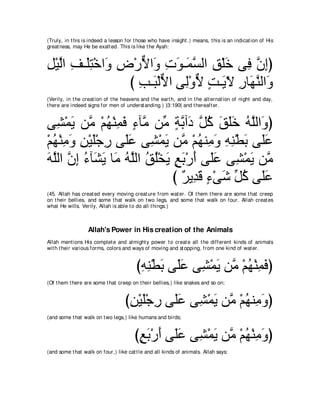 (Truly, in this is indeed a lesson for those who have insight.) means, this is an indication of His
greatness, may He be exalted. This is like the Ayah:
(إِنَّ فِى خَلْقِ السَّمَـوَتِ وَالاٌّرْضِ وَاخْتِلَـفِ الَّيْلِ
وَالنَّهَارِ لاّيَـتٍ لاٌّوْلِى الاٌّلْبَـبِ )
(Verily, in the creation of the heavens and the earth, and in the alternation of night and day,
there are indeed signs for men of understanding.) (3:190) and thereafter.
(وَاللَّهُ خَلَقَ كُلَّ دَآبَّةٍ مِّن مَّآءٍ فَمِنْهُمْ مَّن يَمْشِى
عَلَى بَطْنِهِ وَمِنهُمْ مَّن يَمْشِى عَلَى رِجْلَيْنِ وَمِنْهُمْ
مَّن يَمْشِى عَلَى أَرْبَعٍ يَخْلُقُ اللَّهُ مَا يَشَآءُ إِنَّ اللَّهَ
عَلَى كُلِّ شَىْءٍ قَدِيرٌ )
(45. Allah has created every moving creature from water. Of them there are some that creep
on their bellies, and some that walk on two legs, and some that walk on four. Allah creates
what He wills. Verily, Allah is able to do all things.)
Allah's Power in His creation of the Animals
Allah mentions His complete and almighty power to create all the different kinds of animals
with their various forms, colors and ways of moving and stopping, from one kind of water.
(فَمِنْهُمْ مَّن يَمْشِى عَلَى بَطْنِهِ)
(Of them there are some that creep on their bellies,) like snakes and so on;
(وَمِنهُمْ مَّن يَمْشِى عَلَى رِجْلَيْنِ)
(and some that walk on two legs,) like humans and birds;
(وَمِنْهُمْ مَّن يَمْشِى عَلَى أَرْبَعٍ)
(and some that walk on four,) like cattle and all kinds of animals. Allah says: